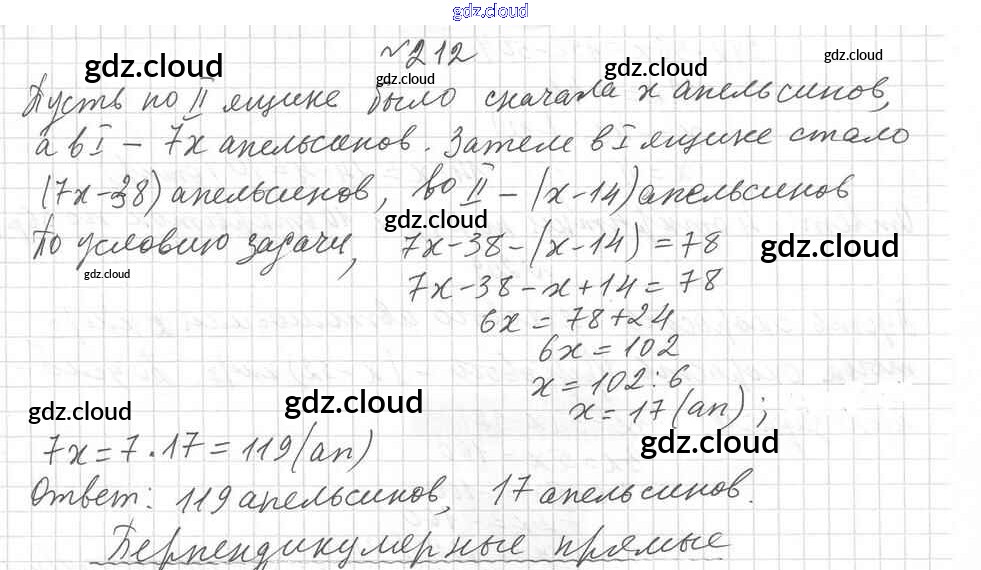 gdz.cloud
№212
gdz.cloud gdz.cloud gdz.cloud
Пусть по II ящике было сначала x апельсинов,
а в I – 7x апельсинов. Затем в I ящике стало
(7x-38) апельсинов, во II – (x-14) апельсинов
gdz.cloud
По условию задачи, 7x-38-(x-14)=78
gdz.cloud
gdz.cloud
7x-38-x+14=78
6x=78+24
6x=102
x=102:6
gdz.cloud gdz.cloud
x=17(ап);
gdz.cloud
7x=7·17=119(ап)
Ответ: 119 апельсинов, 17 апельсинов.
Перпендикулярные прямые